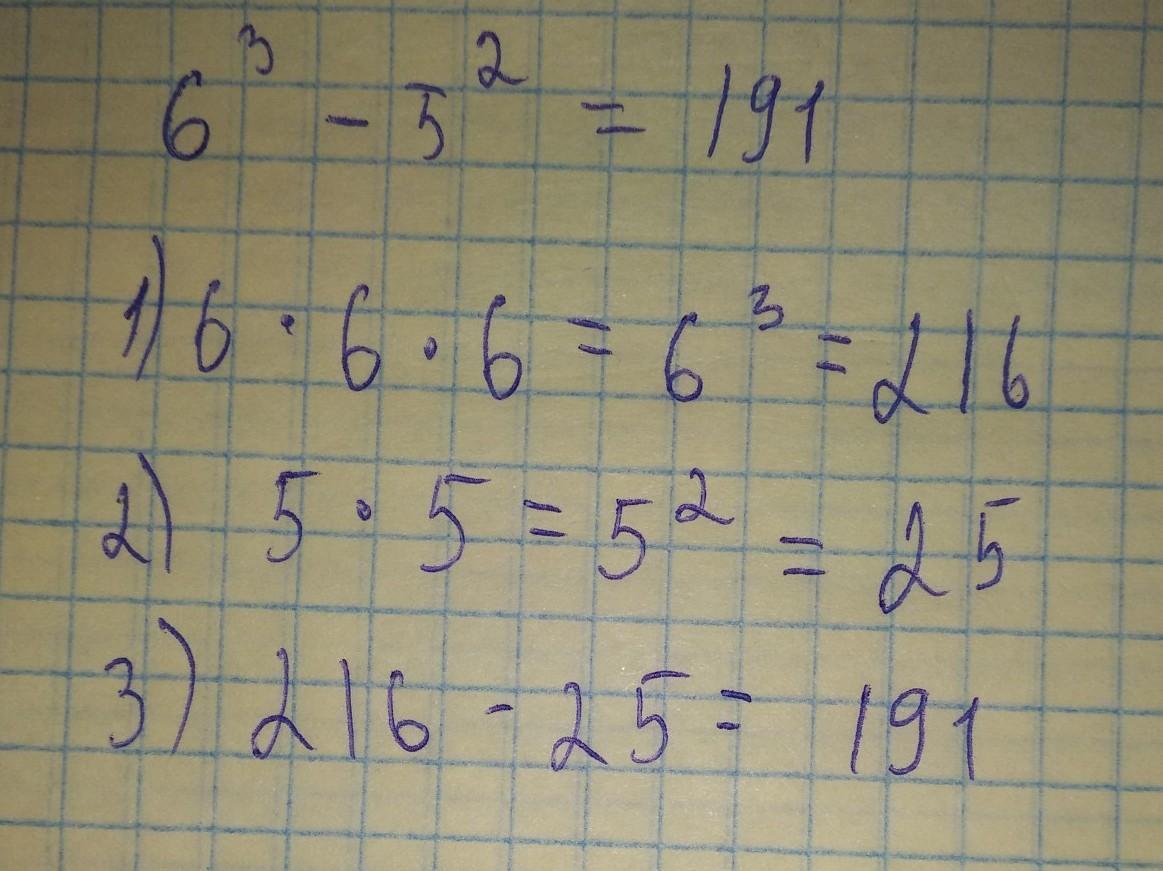 6³ - 5² = 191
1) 6 · 6 · 6 = 6³ = 216
2) 5 · 5 = 5² = 25
3) 216 - 25 = 191